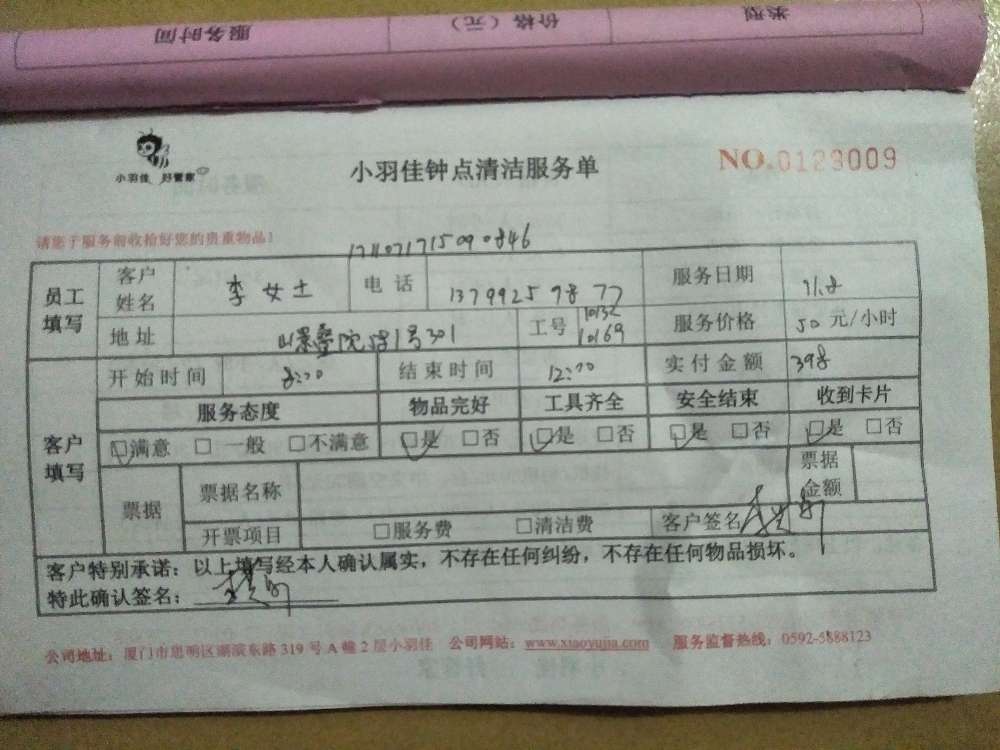 服务时间 价格（元） 类型
小羽佳 好管家
小羽佳钟点清洁服务单
NO.0123009
请您于服务前收拾好您的贵重物品！
1711071715090846
员工填写 客户姓名 李女士 电话 13799259877 服务日期 11.8
地址 号301 工号 10132 10169 服务价格 50元/小时
客户填写 开始时间 8:00 结束时间 12:00 实付金额 398
服务态度 物品完好 工具齐全 安全结束 收到卡片
☑满意 □一般 □不满意 ☑是 □否 ☑是 □否 ☑是 □否 ☑是 □否
票据 票据名称 票据金额
开票项目 □服务费 □清洁费 客户签名
客户特别承诺：以上填写经本人确认属实，不存在任何纠纷，不存在任何物品损坏。
特此确认签名：
公司地址：厦门市思明区湖滨东路319号A幢2层小羽佳 公司网站：www.xiaoyujia.com 服务监督热线：0592-5888123